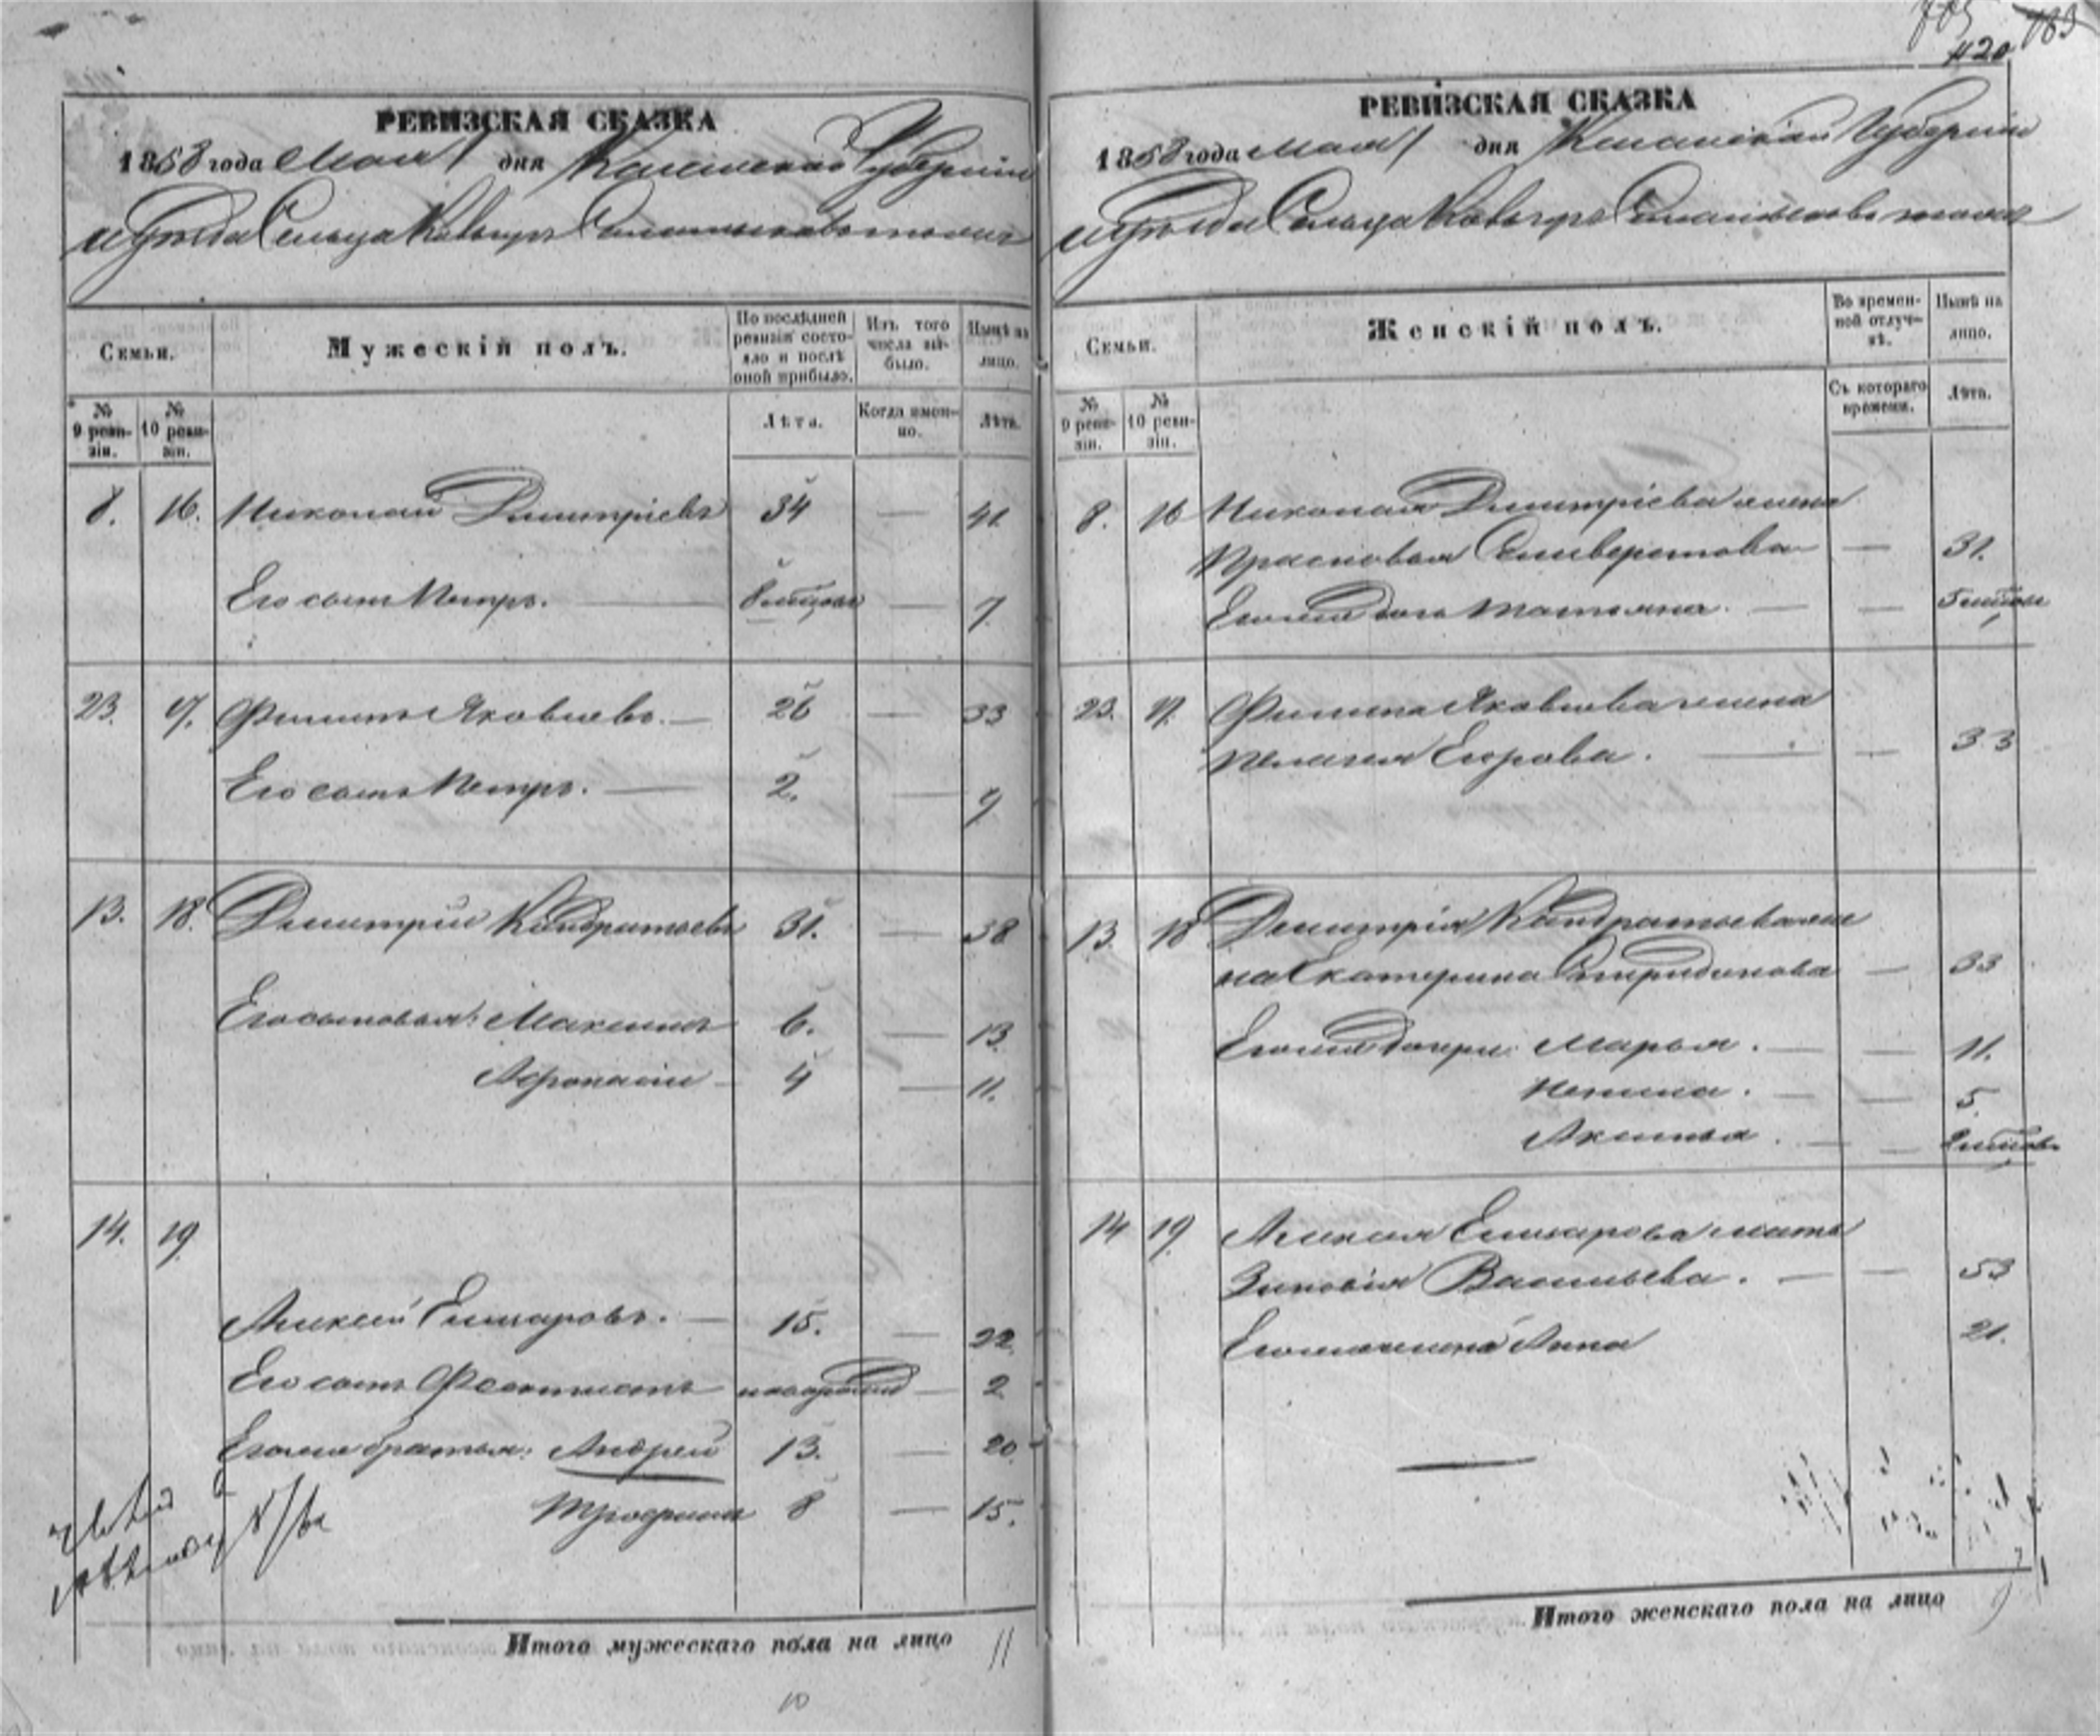 420
РЕВИЗСКАЯ СКАЗКА
1858 года Мая 1 дня Казанской Губерніи
и уѣзда Сельца
Семьи.
Мужескій полъ.
По послѣдней ревизіи состояло и послѣ оной прибыло.
Изъ того числа выбыло.
Нынѣ на лицо.
№ 9 ревизіи.
№ 10 ревизіи.
Лѣта.
Когда именно.
Лѣта.
8. 16. Николай Дмитріевъ 34 — 41.
Его сынъ Петръ. — — 7.
23. 17. Филипъ Яковлевъ. — 26 — 33
Его сынъ Петръ. — 2. — 9
13. 18. Дмитрій Кондратьевъ 31. — 38
Его сыновья: Максимъ 6. — 13.
Афонасій — 4 — 11.
14. 19.
Алексей Елизаровъ. — 15. — 22.
Его сынъ Феоктистъ новорожд — 2
Его же братья: Андрей 13. — 20.
Трофимъ 8 — 15.
Итого мужескаго пола на лицо 11
10
РЕВИЗСКАЯ СКАЗКА
1858 года мая 1 дня Казанской Губерніи
и уѣзда Сельца
Семьи.
Женскій полъ.
Во временной отлучкѣ.
Нынѣ на лицо.
№ 9 ревизіи.
№ 10 ревизіи.
Съ котораго времени.
Лѣта.
8. 16 Николая Дмитріева жена
Прасковья Селиверстова — 31.
Его же дочь Татьяна. — —
23. 17. Филипа Яковлева жена
Пелагея Егорова. — — 33
13. 18 Дмитрія Кондратьева же
на Екатерина Спиридонова — 33
Его же дочери: Марья. — — 11.
— — 5.
Аксинья. — —
14 19. Алексея Елизарова мать
Зиновія Васильева. — — 53
Его же жена Анна 21.
Итого женскаго пола на лицо 9